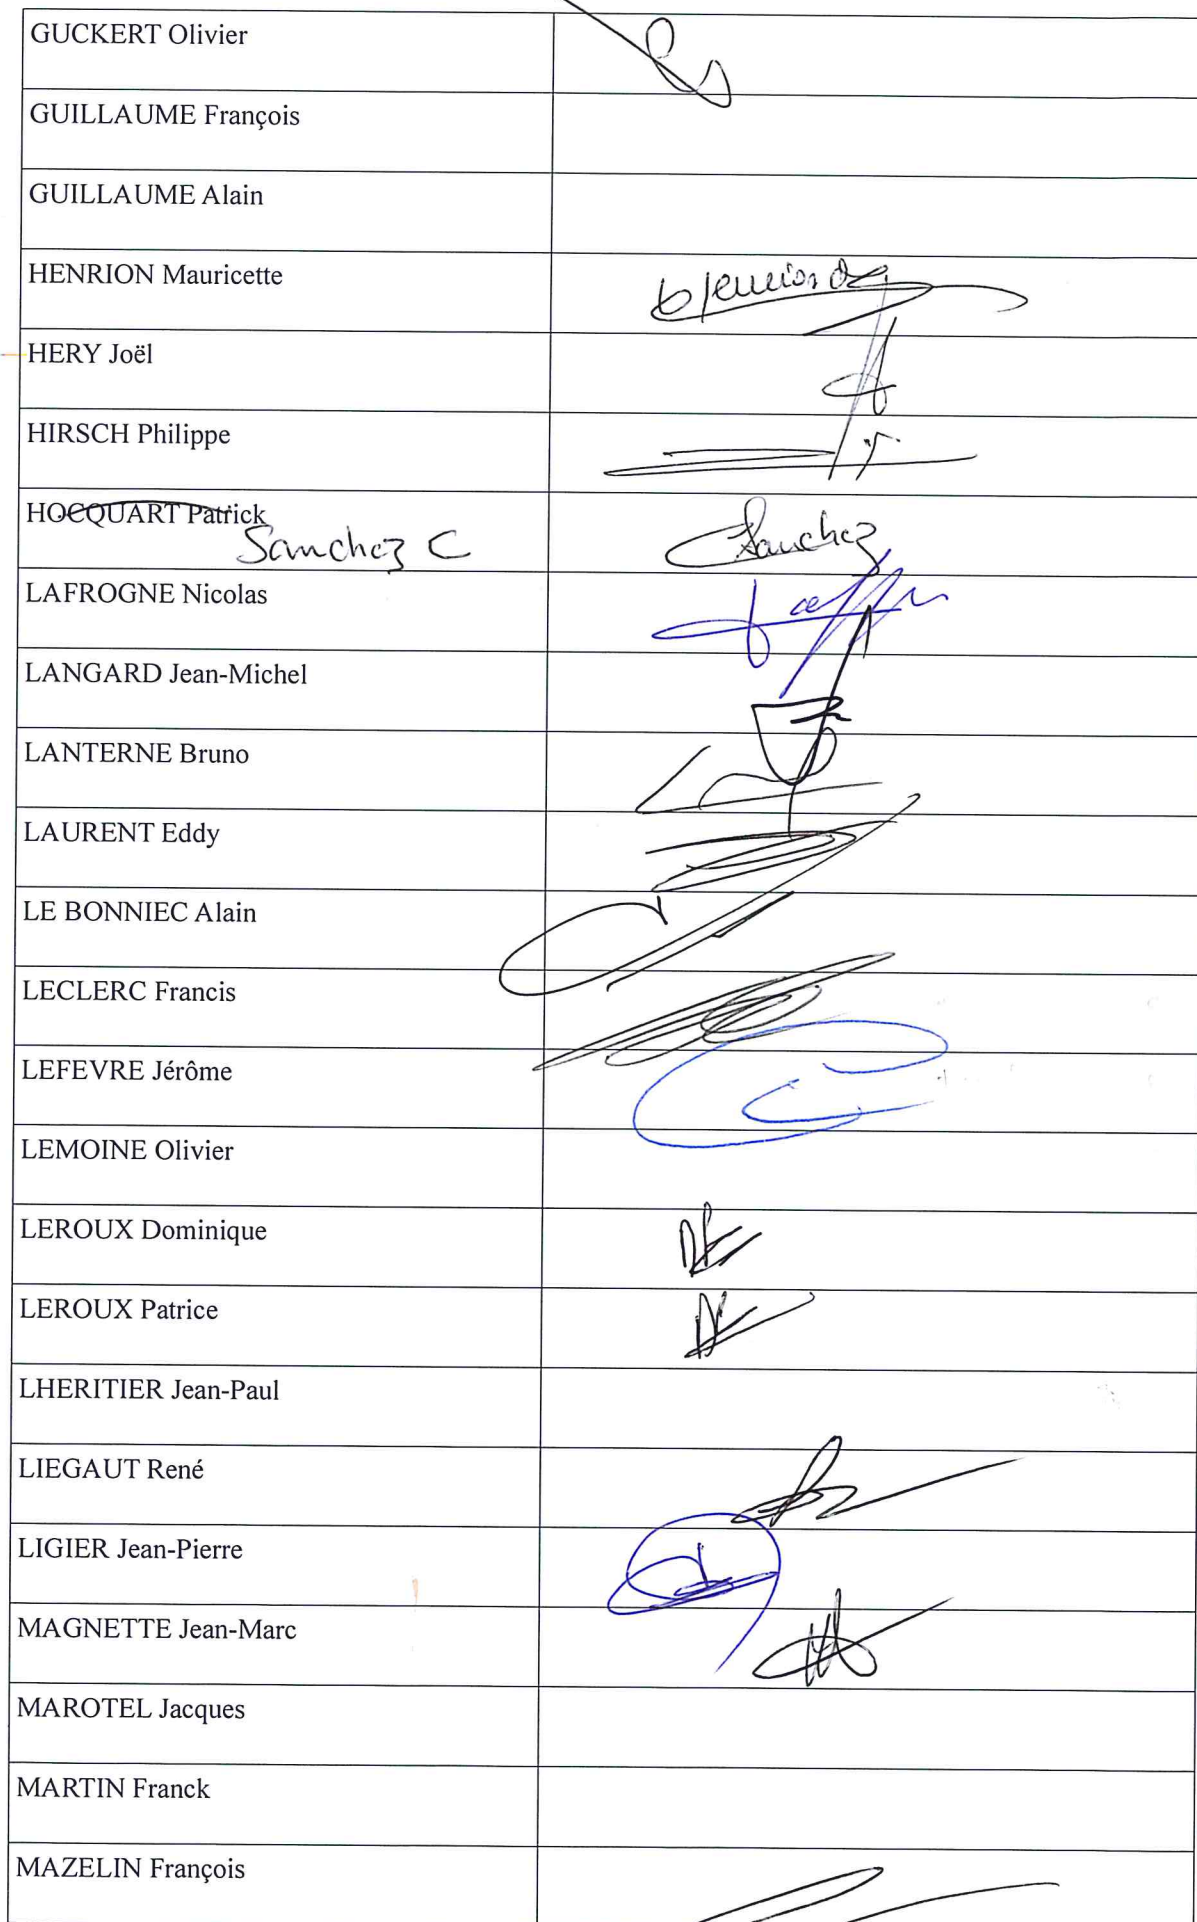 GUCKERT Olivier
GUILLAUME François
GUILLAUME Alain
HENRION Mauricette
HERY Joël
HIRSCH Philippe
HOCQUART Patrick
Sanchez C
Sanchez
LAFROGNE Nicolas
LANGARD Jean-Michel
LANTERNE Bruno
LAURENT Eddy
LE BONNIEC Alain
LECLERC Francis
LEFEVRE Jérôme
LEMOINE Olivier
LEROUX Dominique
LEROUX Patrice
LHERITIER Jean-Paul
LIEGAUT René
LIGIER Jean-Pierre
MAGNETTE Jean-Marc
MAROTEL Jacques
MARTIN Franck
MAZELIN François